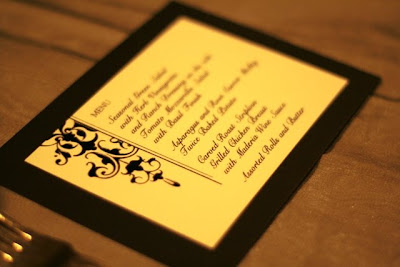 MENU
Seasoned Green Salad
with Herb Vinaigrette
and Ranch Dressing
Tomato Mozzarella Salad
with Basil
Asparagus and Carrots Medley
Twice Baked Potato
Carved Roast
Grilled Chicken Breast
with Madera Wine Sauce
Assorted Rolls and Butter